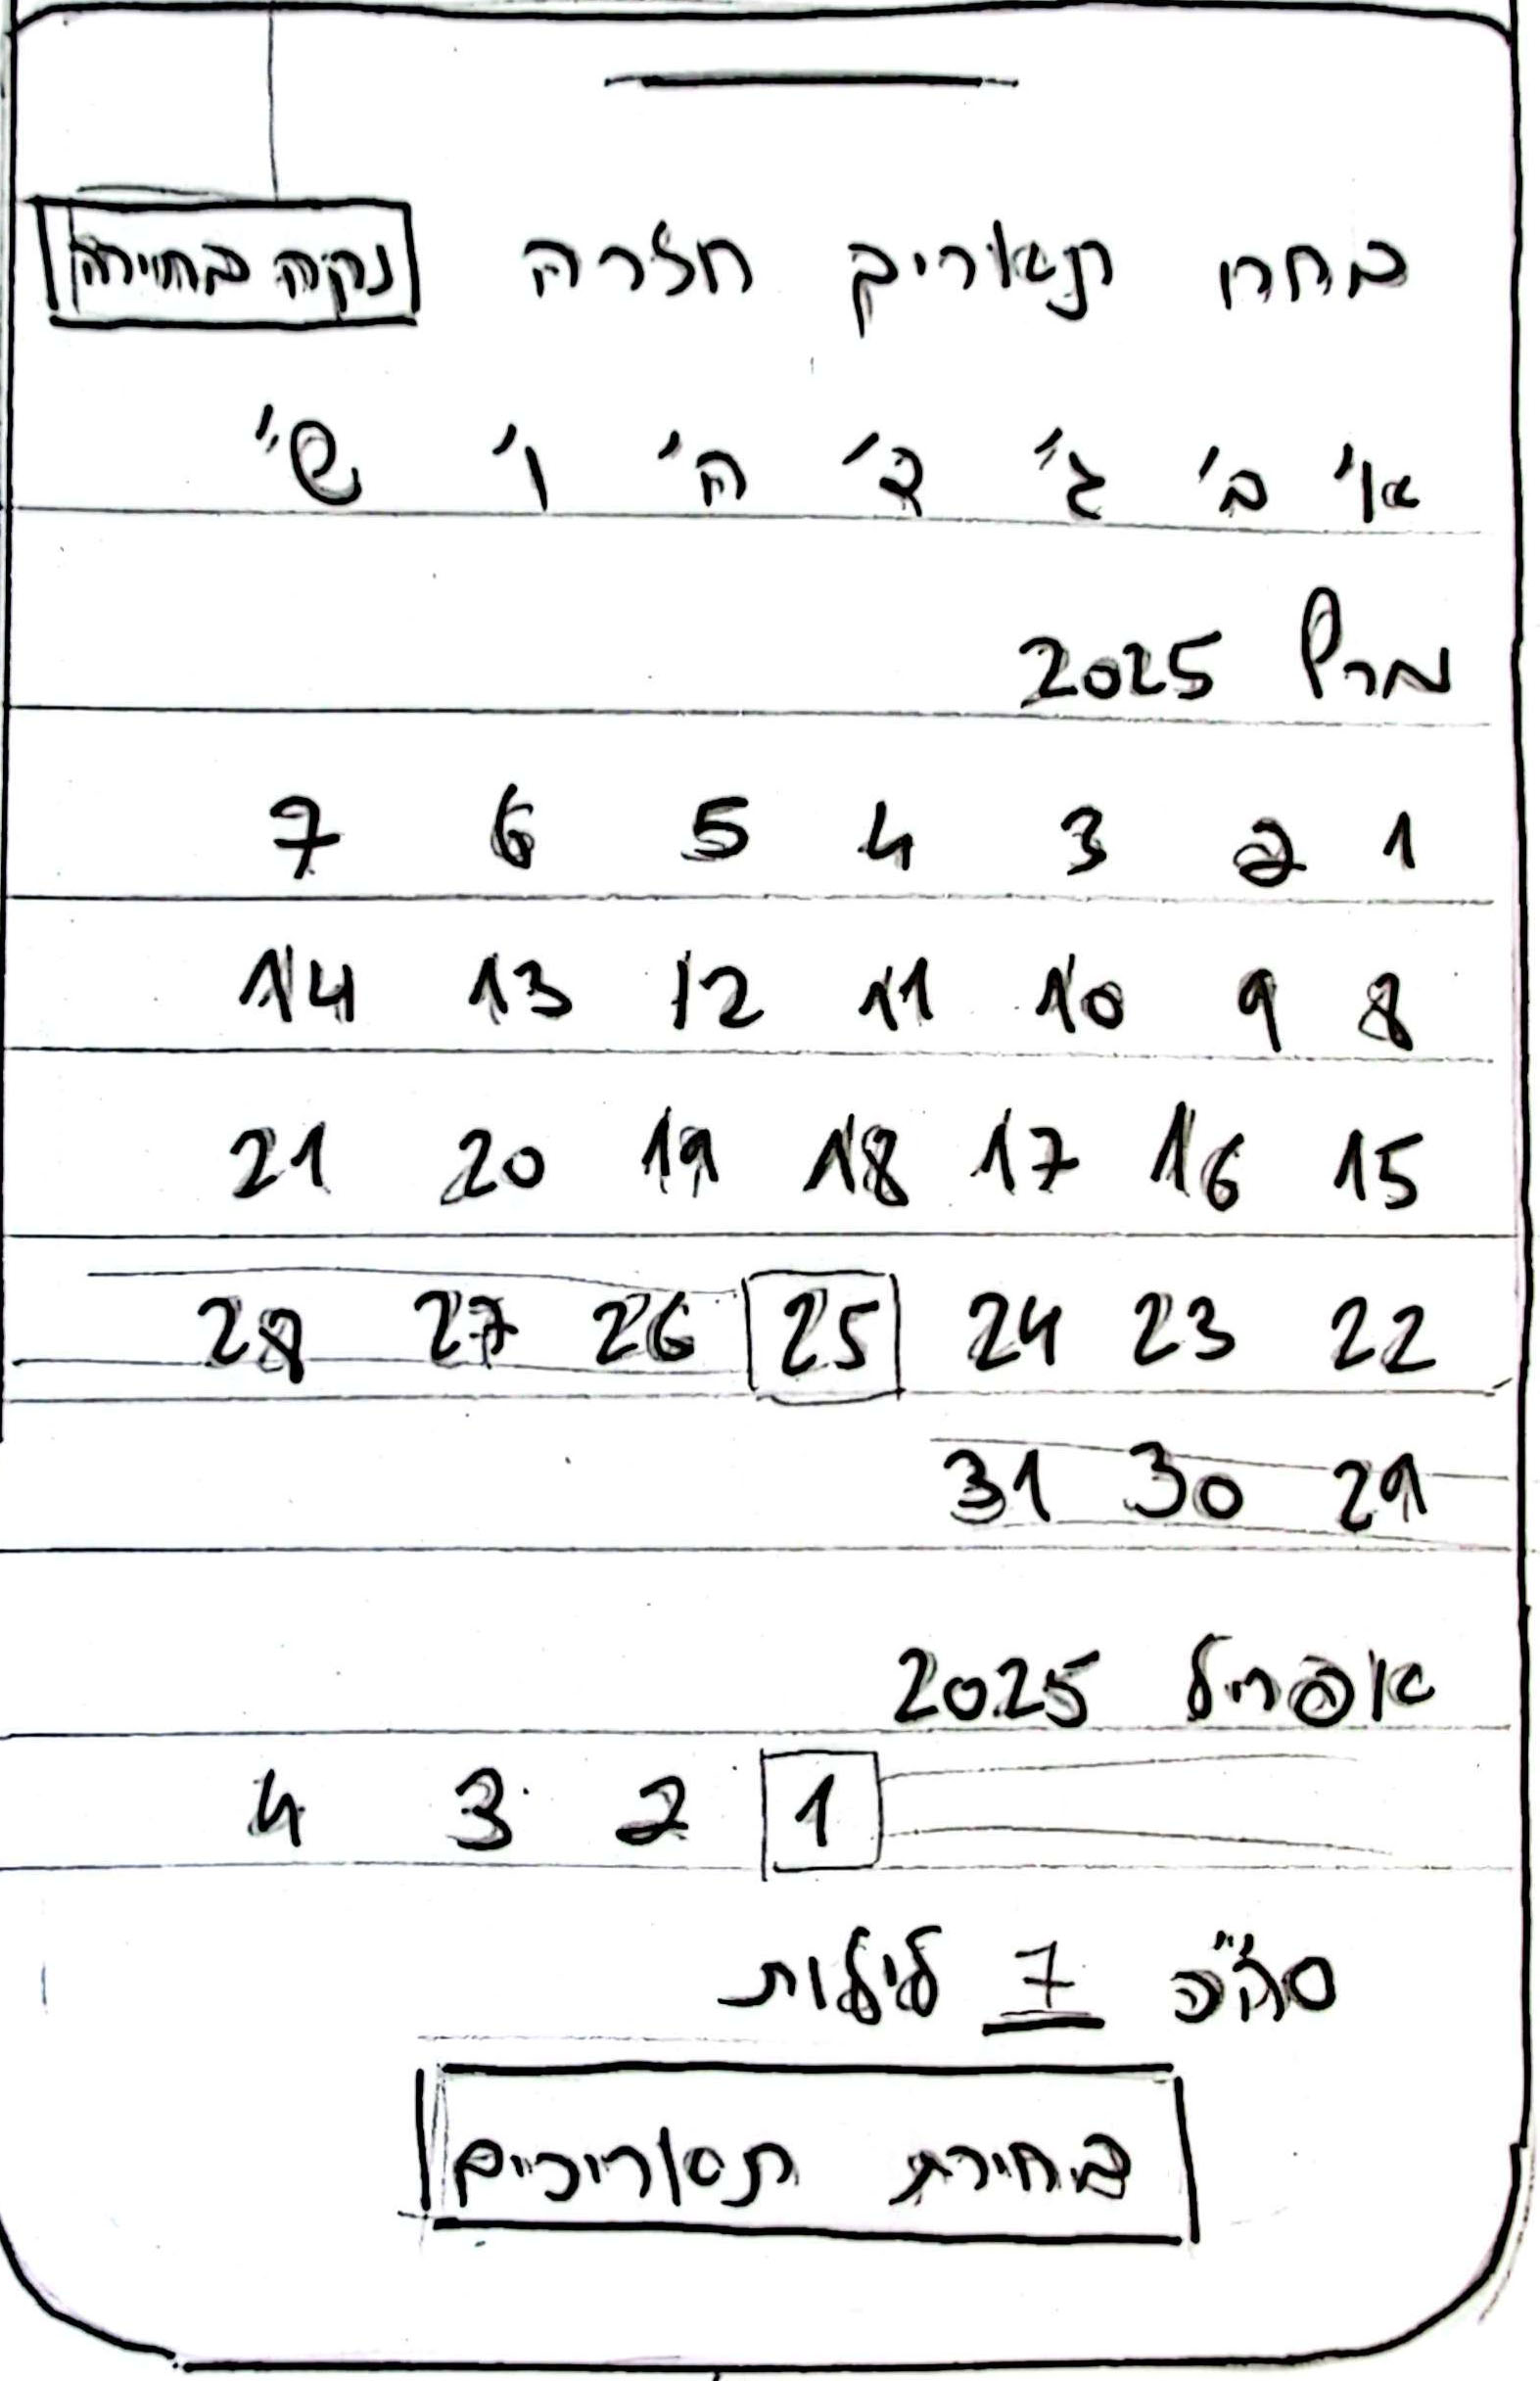 בחרו תאריך חזרה נקה בחירה
א' ב' ג' ד' ה' ו' ש'
מרץ 2025
1 2 3 4 5 6 7
8 9 10 11 12 13 14
15 16 17 18 19 20 21
22 23 24 25 26 27 28
29 30 31
אפריל 2025
1 2 3 4
סה"כ 7 לילות
בחירת תאריכים